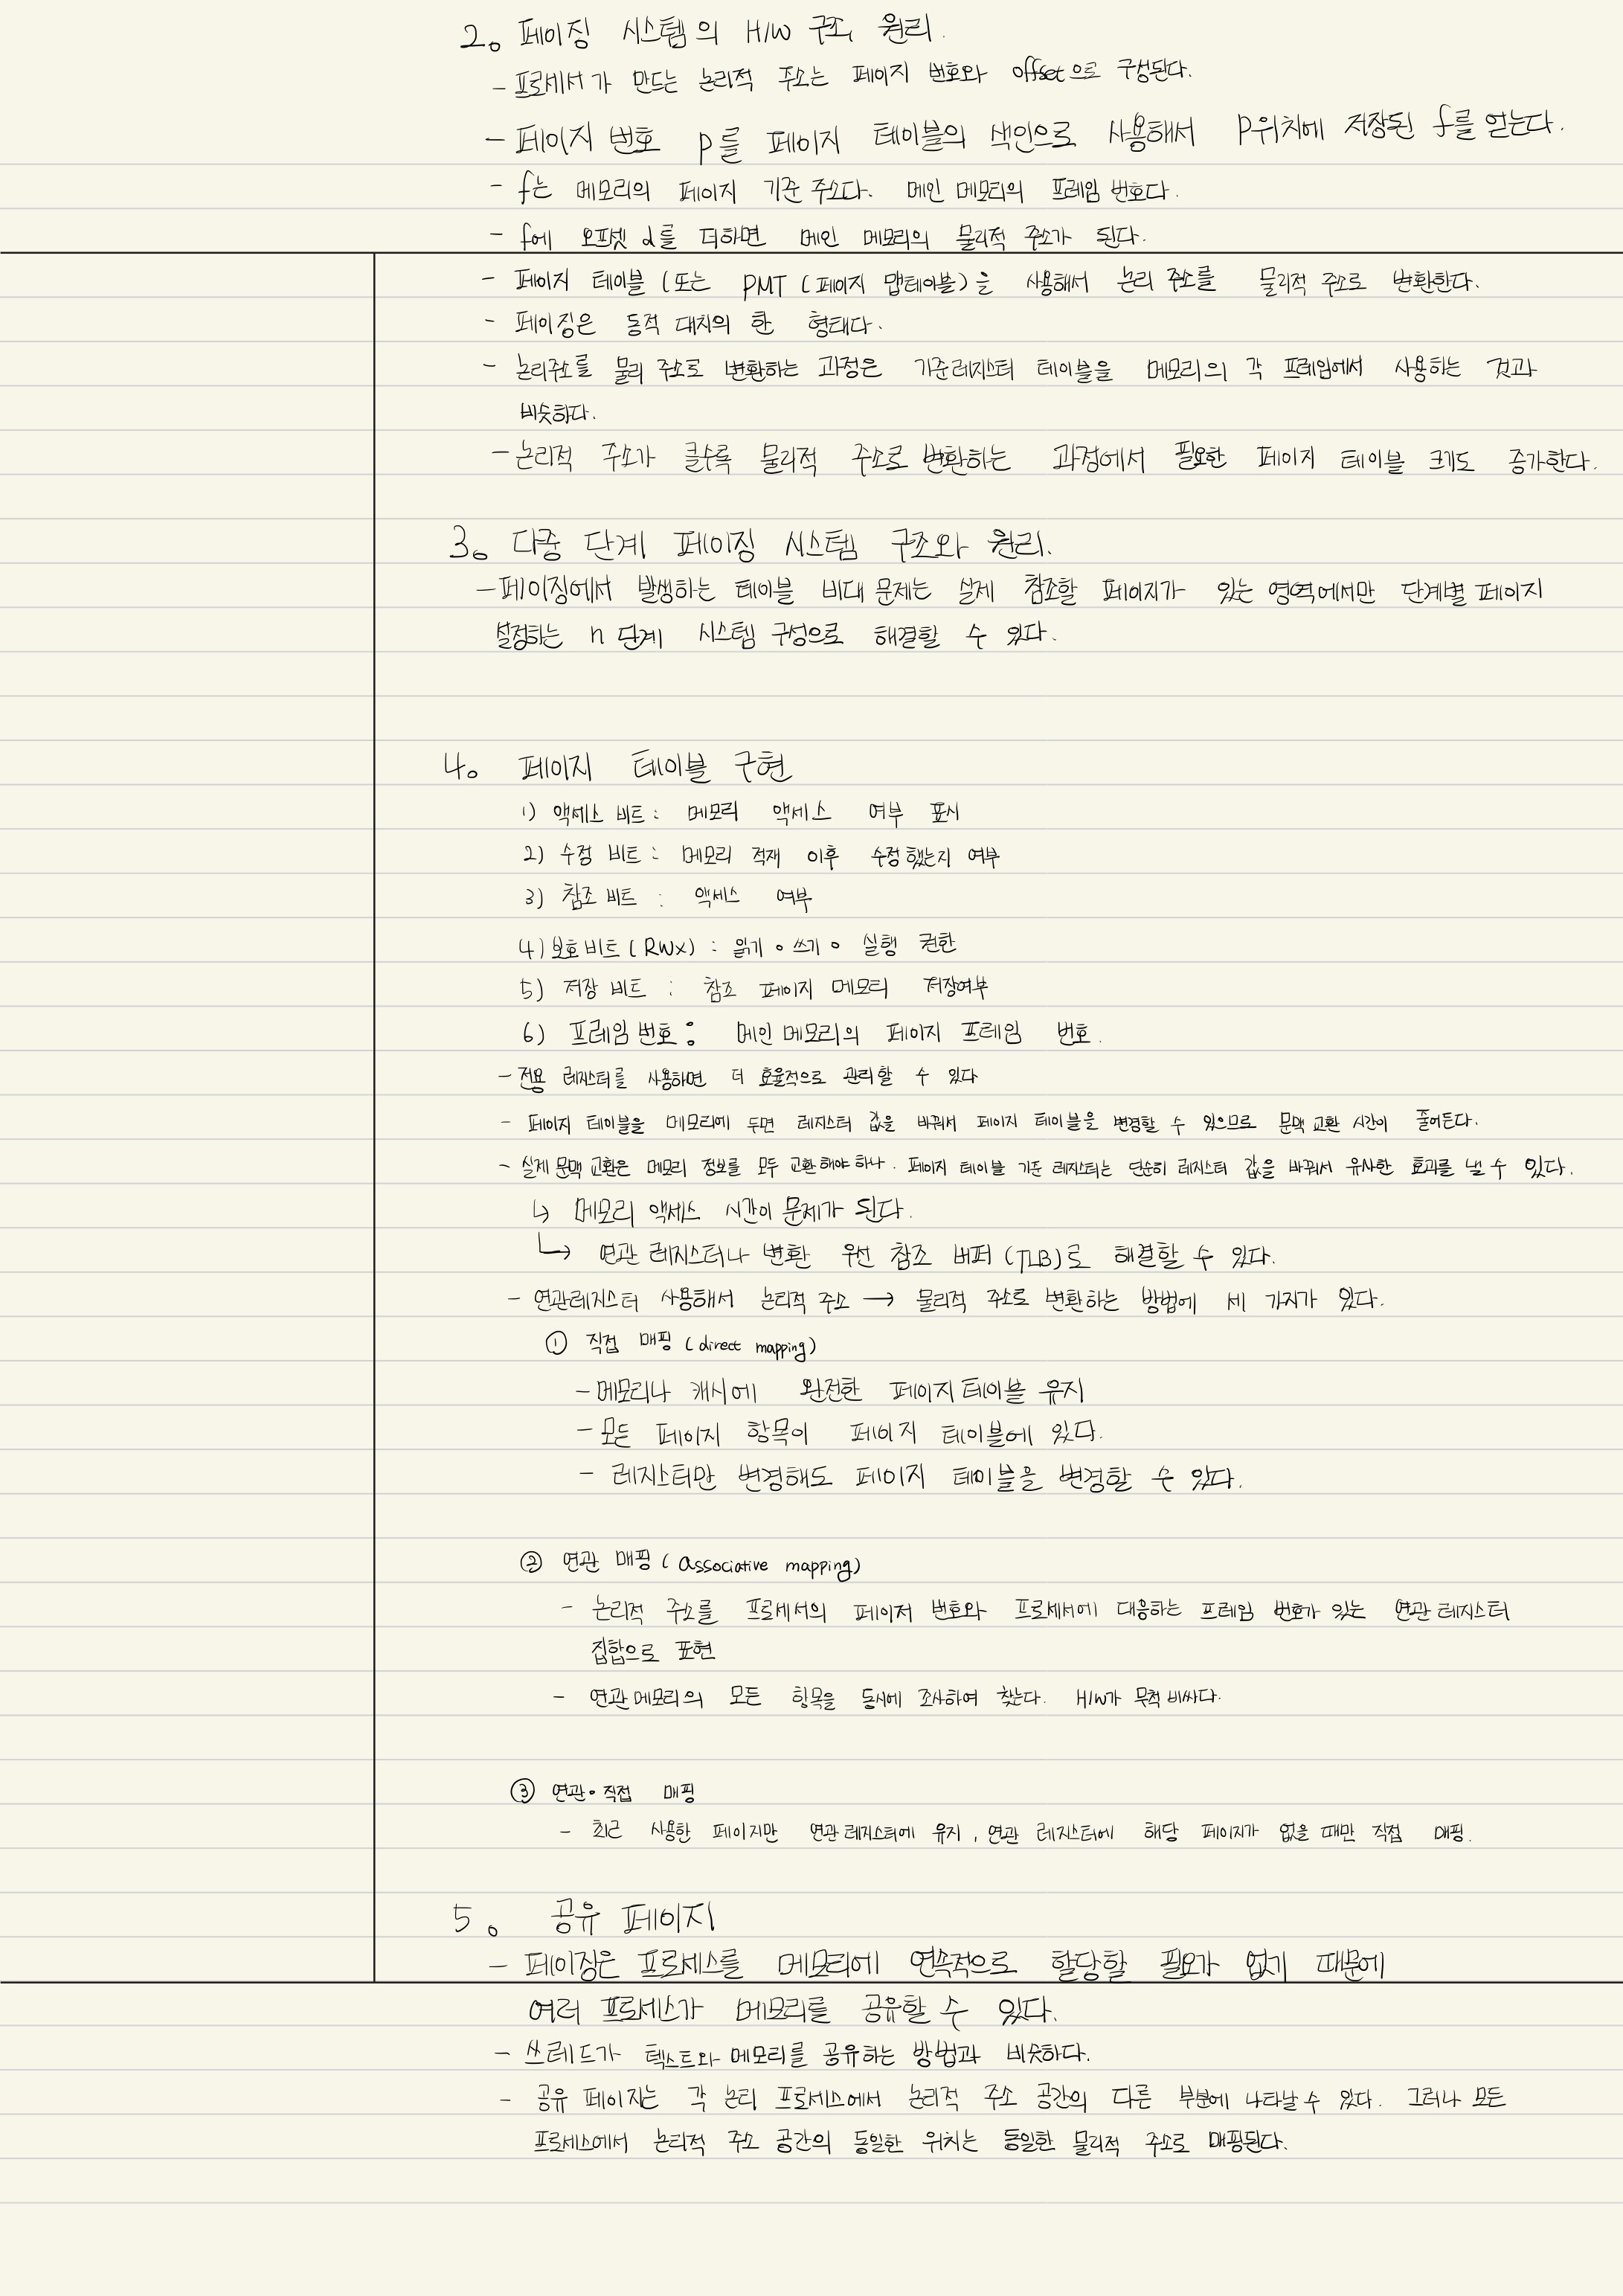 2。 페이징 시스템의 H/W 구조, 원리.
- 프로세서가 만드는 논리적 주소는 페이지 번호와 offset으로 구성된다.
- 페이지 번호 p를 페이지 테이블의 색인으로 사용해서 p위치에 저장된 f를 얻는다.
- f는 메모리의 페이지 기준 주소다. 메인 메모리의 프레임 번호다.
- f에 오프셋 d를 더하면 메인 메모리의 물리적 주소가 된다.
- 페이지 테이블 (또는 PMT (페이지 맵테이블)을 사용해서 논리 주소를 물리적 주소로 변환한다.
- 페이징은 동적 대치의 한 형태다.
- 논리주소를 물리 주소로 변환하는 과정은 기준레지스터 테이블을 메모리의 각 프레임에서 사용하는 것과
비슷하다.
- 논리적 주소가 클수록 물리적 주소로 변환하는 과정에서 필요한 페이지 테이블 크기도 증가한다.
3。 다중 단계 페이징 시스템 구조와 원리.
- 페이징에서 발생하는 테이블 비대 문제는 실제 참조할 페이지가 있는 영역에서만 단계별 페이지
설정하는 n 단계 시스템 구성으로 해결할 수 있다.
4。 페이지 테이블 구현
1) 액세스 비트 : 메모리 액세스 여부 표시
2) 수정 비트 : 메모리 적재 이후 수정했는지 여부
3) 참조 비트 : 액세스 여부
4) 보호비트 (RWX) : 읽기 ∘ 쓰기 ∘ 실행 권한
5) 저장 비트 : 참조 페이지 메모리 저장여부
6) 프레임 번호 : 메인 메모리의 페이지 프레임 번호.
- 전용 레지스터를 사용하면 더 효율적으로 관리할 수 있다
- 페이지 테이블을 메모리에 두면 레지스터 값을 바꿔서 페이지 테이블을 변경할 수 있으므로 문맥 교환 시간이 줄어든다.
- 실제 문맥 교환은 메모리 정보를 모두 교환해야 하나. 페이지 테이블 기준 레지스터는 단순히 레지스터 값을 바꿔서 유사한 효과를 낼 수 있다.
↳ 메모리 액세스 시간이 문제가 된다.
↳ 연관 레지스터나 변환 우선 참조 버퍼 (TLB)로 해결할 수 있다.
- 연관레지스터 사용해서 논리적 주소 → 물리적 주소로 변환하는 방법에 세 가지가 있다.
① 직접 매핑 (direct mapping)
- 메모리나 캐시에 완전한 페이지 테이블 유지
- 모든 페이지 항목이 페이지 테이블에 있다.
- 레지스터만 변경해도 페이지 테이블을 변경할 수 있다.
② 연관 매핑 (associative mapping)
- 논리적 주소를 프로세서의 페이지 번호와 프로세서에 대응하는 프레임 번호가 있는 연관 레지스터
집합으로 표현
- 연관메모리의 모든 항목을 동시에 조사하여 찾는다. H/W가 무척 비싸다.
③ 연관∘직접 매핑
- 최근 사용한 페이지만 연관 레지스터에 유지, 연관 레지스터에 해당 페이지가 없을 때만 직접 매핑.
5。 공유 페이지
- 페이징은 프로세스를 메모리에 연속적으로 할당할 필요가 없기 때문에
여러 프로세스가 메모리를 공유할 수 있다.
- 쓰레드가 텍스트와 메모리를 공유하는 방법과 비슷하다.
- 공유 페이지는 각 논리 프로세스에서 논리적 주소 공간의 다른 부분에 나타날 수 있다. 그러나 모든
프로세스에서 논리적 주소 공간의 동일한 위치는 동일한 물리적 주소로 매핑된다.